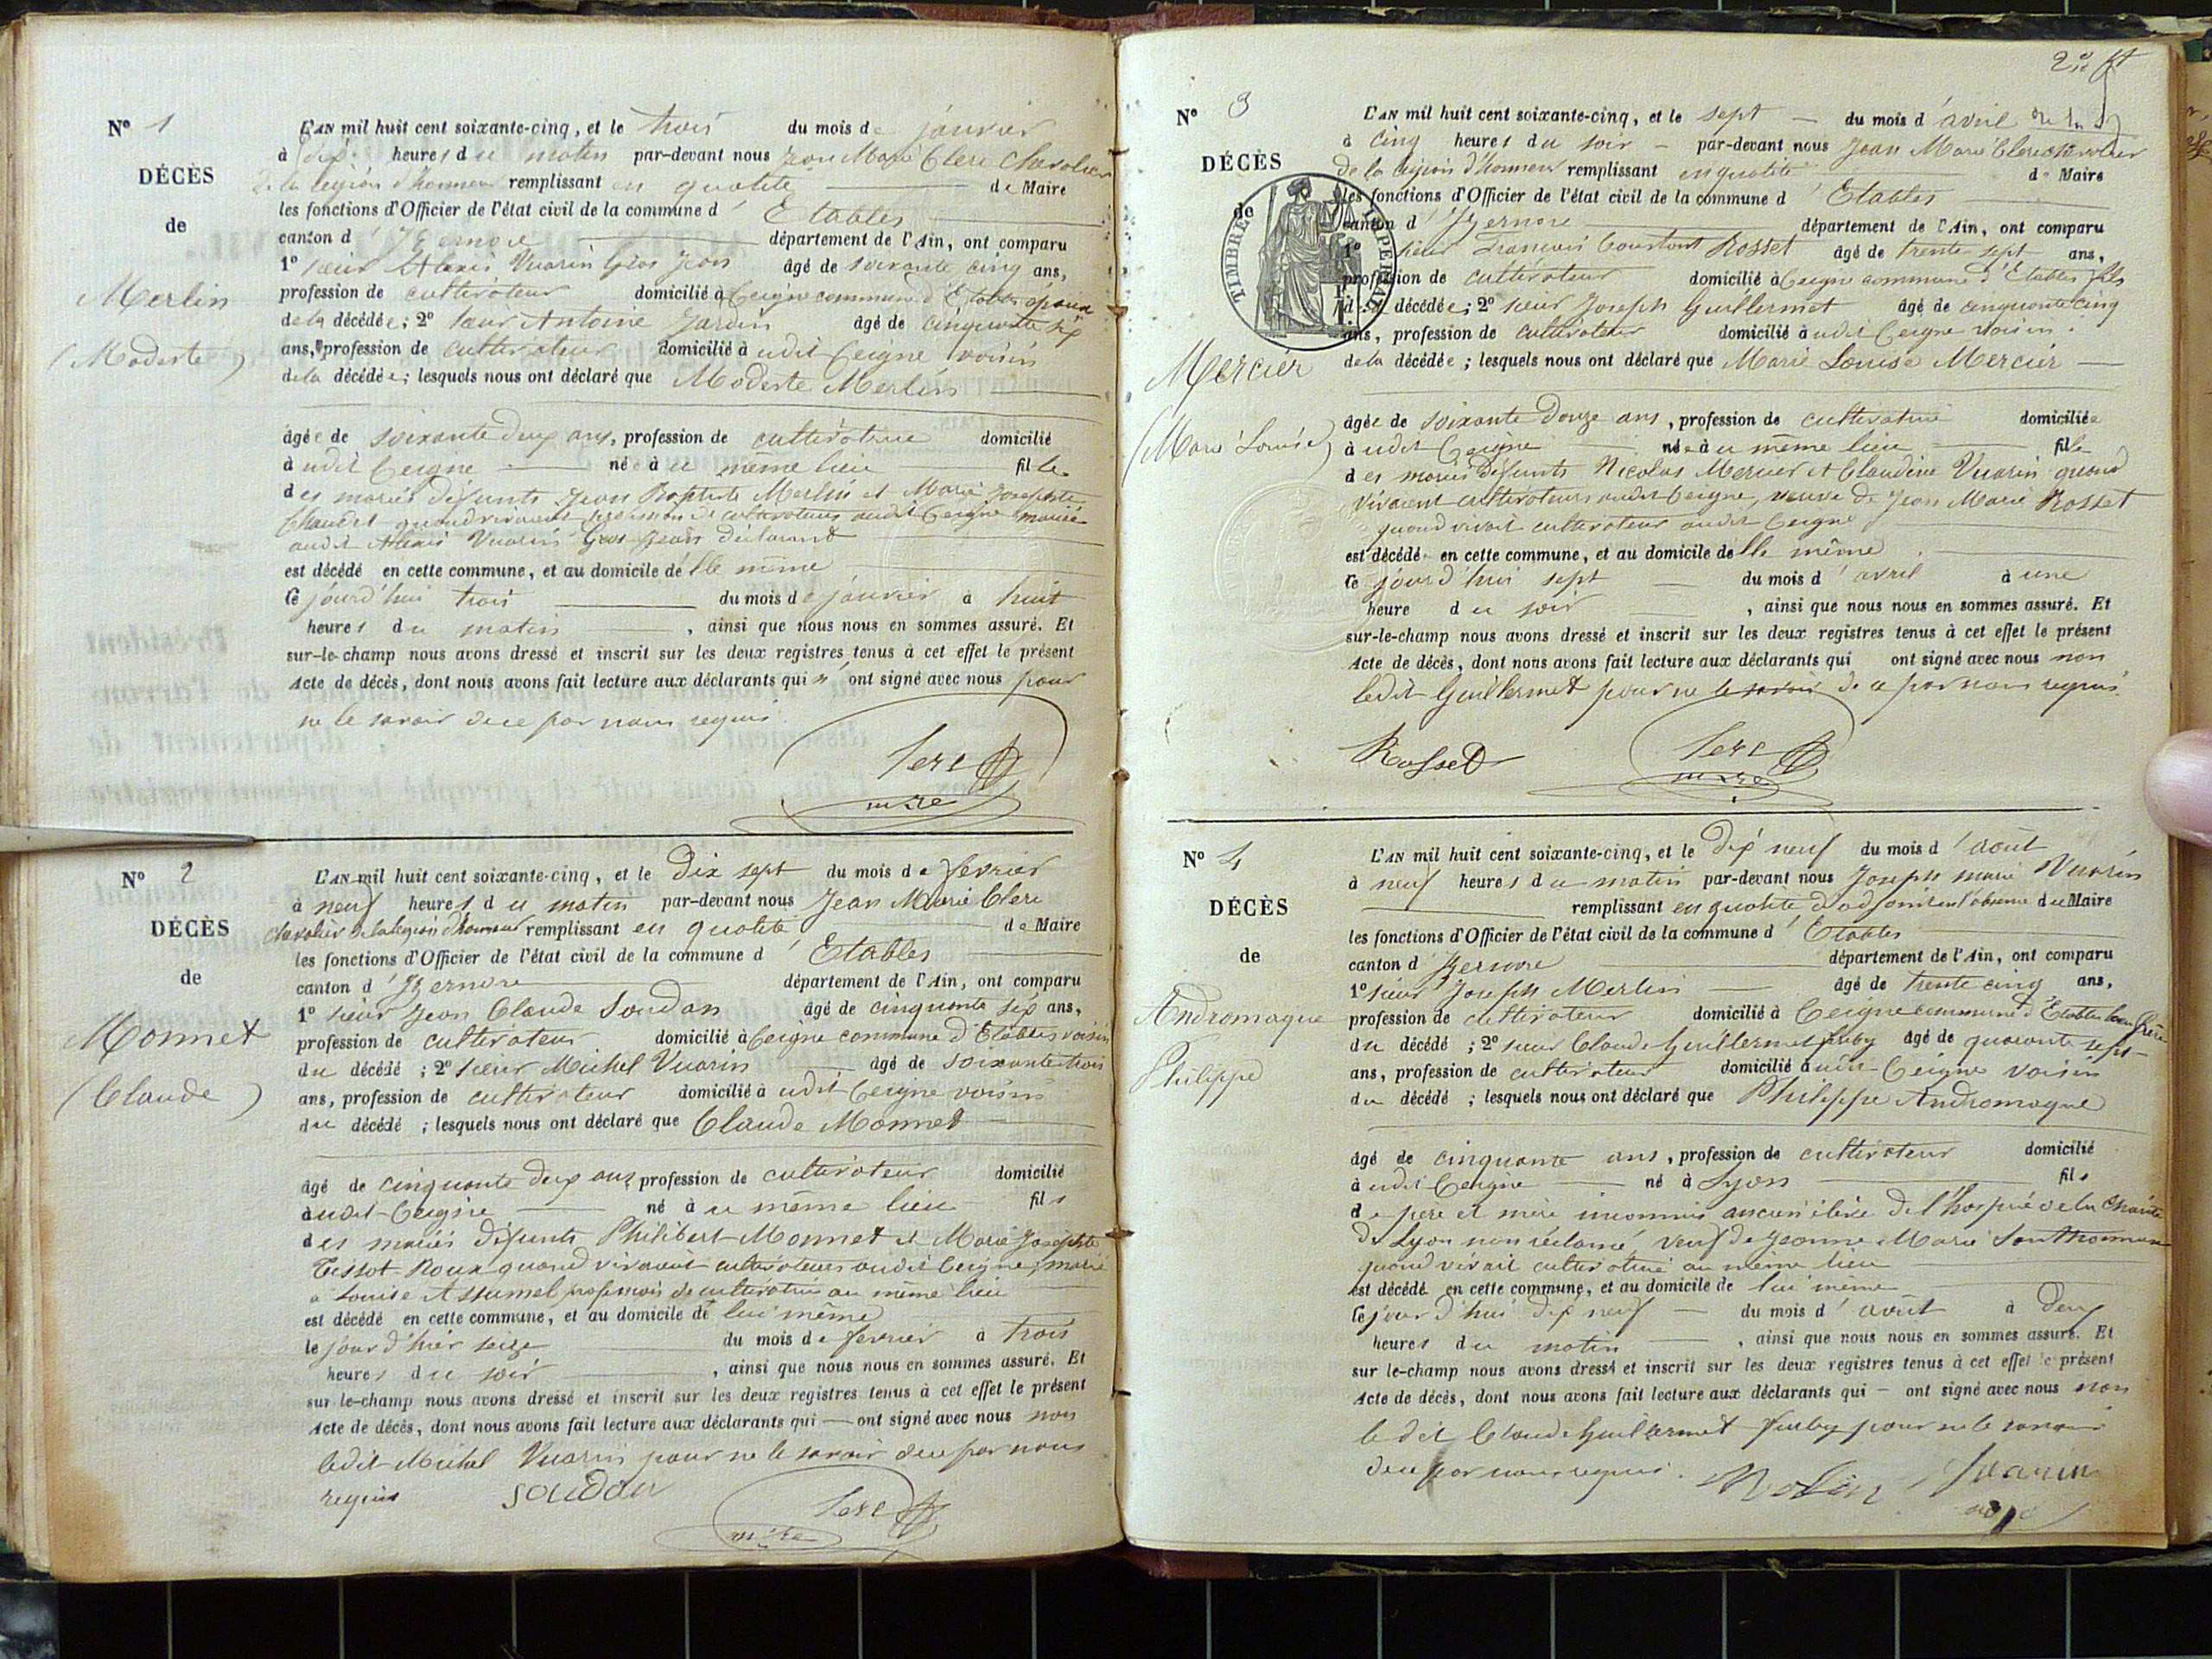 N° 1
DÉCÈS
de
Merlin
(Modeste)
L'AN mil huit cent soixante-cinq, et le trois du mois de janvier
à dix heures du matin par-devant nous Jean Marie Clerc Chevalier
de la légion d'honneur remplissant en qualité de Maire
les fonctions d'Officier de l'état civil de la commune d' Etables
canton d' Izernore département de l'Ain, ont comparu
1° sieur Alexis Vuarin Gros Jean âgé de soixante cinq ans,
profession de cultivateur domicilié à Ceigne commune d'Etables époux
de la décédée; 2° sieur Antoine Jardin âgé de cinquante six
ans, profession de cultivateur domicilié à udit Ceigne voisin
de la décédée; lesquels nous ont déclaré que Modeste Merlin
âgée de soixante deux ans, profession de cultivatrice domicilié
à udit Ceigne née à u même lieu fille
des mariés défunts Jean Baptiste Merlin et Marie Josephte
Chaudet quand vivaient profession de cultivateurs audit Ceigne mariée
audit Alexis Vuarin Gros Jean déclarant
est décédé en cette commune, et au domicile de elle même
le jourd'hui trois du mois de janvier à huit
heures du matin, ainsi que nous nous en sommes assuré. Et
sur-le-champ nous avons dressé et inscrit sur les deux registres tenus à cet effet le présent
Acte de décès, dont nous avons fait lecture aux déclarants qui n'ont signé avec nous pour
ne le savoir de ce par nous requis
Clerc
maire
N° 2
DÉCÈS
de
Monnet
(Claude)
L'AN mil huit cent soixante-cinq, et le Dix sept du mois de fevrier
à neuf heures du matin par-devant nous Jean Marie Clerc
chevalier de la légion d'honneur remplissant en qualité de Maire
les fonctions d'Officier de l'état civil de la commune d' Etables
canton d' Izernore département de l'Ain, ont comparu
1° sieur Jean Claude Soudan âgé de cinquante six ans,
profession de cultivateur domicilié à Ceigne commune d'Etables voisin
du décédé; 2° sieur Michel Vuarin âgé de soixante trois
ans, profession de cultivateur domicilié à udit Ceigne voisin
du décédé; lesquels nous ont déclaré que Claude Monnet
âgé de cinquante deux ans, profession de cultivateur domicilié
à udit Ceigne né à u même lieu fils
des mariés défunts Philibert Monnet et Marie Josephte
Tissot Roux quand vivaient cultivateurs audit Ceigne, marié
a Louise Assumel profession de cultivatrice au même lieu
est décédé en cette commune, et au domicile de lui même
le jour d'hier seize du mois de fevrier à trois
heures du soir, ainsi que nous nous en sommes assuré. Et
sur-le-champ nous avons dressé et inscrit sur les deux registres tenus à cet effet le présent
Acte de décès, dont nous avons fait lecture aux déclarants qui ont signé avec nous non
ledit Michel Vuarin pour ne le savoir de ce par nous
requis
Soudan
Clerc
maire
N° 3
DÉCÈS
de
TIMBRE IMPERIAL
Mercier
(Marie Louise)
L'AN mil huit cent soixante-cinq, et le sept du mois d'avril
à cinq heures du soir par-devant nous Jean Marie Clerc chevalier
de la légion d'honneur remplissant en qualité de Maire
les fonctions d'Officier de l'état civil de la commune d' Etables
canton d' Izernore département de l'Ain, ont comparu
1° sieur François Constant Rosset âgé de trente sept ans,
profession de cultivateur domicilié à Ceigne commune d'Etables fils
de la décédée; 2° sieur Joseph Guillermet âgé de cinquante cinq
ans, profession de cultivateur domicilié à udit Ceigne voisin
de la décédée; lesquels nous ont déclaré que Marie Louise Mercier
âgée de soixante Douze ans, profession de cultivatrice domiciliée
à udit Ceigne née à u même lieu fille
des mariés défunts Nicolas Mercier et Claudine Vuarin quand
vivaient cultivateurs audit Ceigne, veuve de Jean Marie Rosset
quand vivait cultivateur audit Ceigne
est décédé en cette commune, et au domicile de elle même
le jourd'hui sept du mois d'avril à une
heure du soir, ainsi que nous nous en sommes assuré. Et
sur-le-champ nous avons dressé et inscrit sur les deux registres tenus à cet effet le présent
Acte de décès, dont nous avons fait lecture aux déclarants qui ont signé avec nous non
ledit Guillermet pour ne le savoir de ce par nous requis
Rosset
Clerc
maire
N° 4
DÉCÈS
de
Andromaque
Philippe
L'AN mil huit cent soixante-cinq, et le Dix neuf du mois d'août
à neuf heures du matin par-devant nous Joseph marie Vuarin
remplissant en qualité d'adjoint en l'absence du Maire
les fonctions d'Officier de l'état civil de la commune d' Etables
canton d' Izernore département de l'Ain, ont comparu
1° sieur Joseph Merlin âgé de trente cinq ans,
profession de cultivateur domicilié à Ceigne commune d'Etables beau frère
du décédé; 2° sieur Claude Guillermet Juby âgé de quarante sept
ans, profession de cultivateur domicilié à udit Ceigne voisin
du décédé; lesquels nous ont déclaré que Philippe Andromaque
âgé de cinquante ans, profession de cultivateur domicilié
à udit Ceigne né à Lyon fils
de père et mère inconnus ancien élève de l'hospice de la charité
de Lyon non réclamé, veuf de Jeanne Marie Sonthonnax
quand vivait cultivatrice au même lieu
est décédé en cette commune, et au domicile de lui même
le jour d'hui dix neuf du mois d'août à deux
heures du matin, ainsi que nous nous en sommes assuré. Et
sur le-champ nous avons dressé et inscrit sur les deux registres tenus à cet effet le présent
Acte de décès, dont nous avons fait lecture aux déclarants qui ont signé avec nous non
le dit Claude Guillermet Juby pour ne le savoir
de ce par nous requis.
Merlin Vuarin